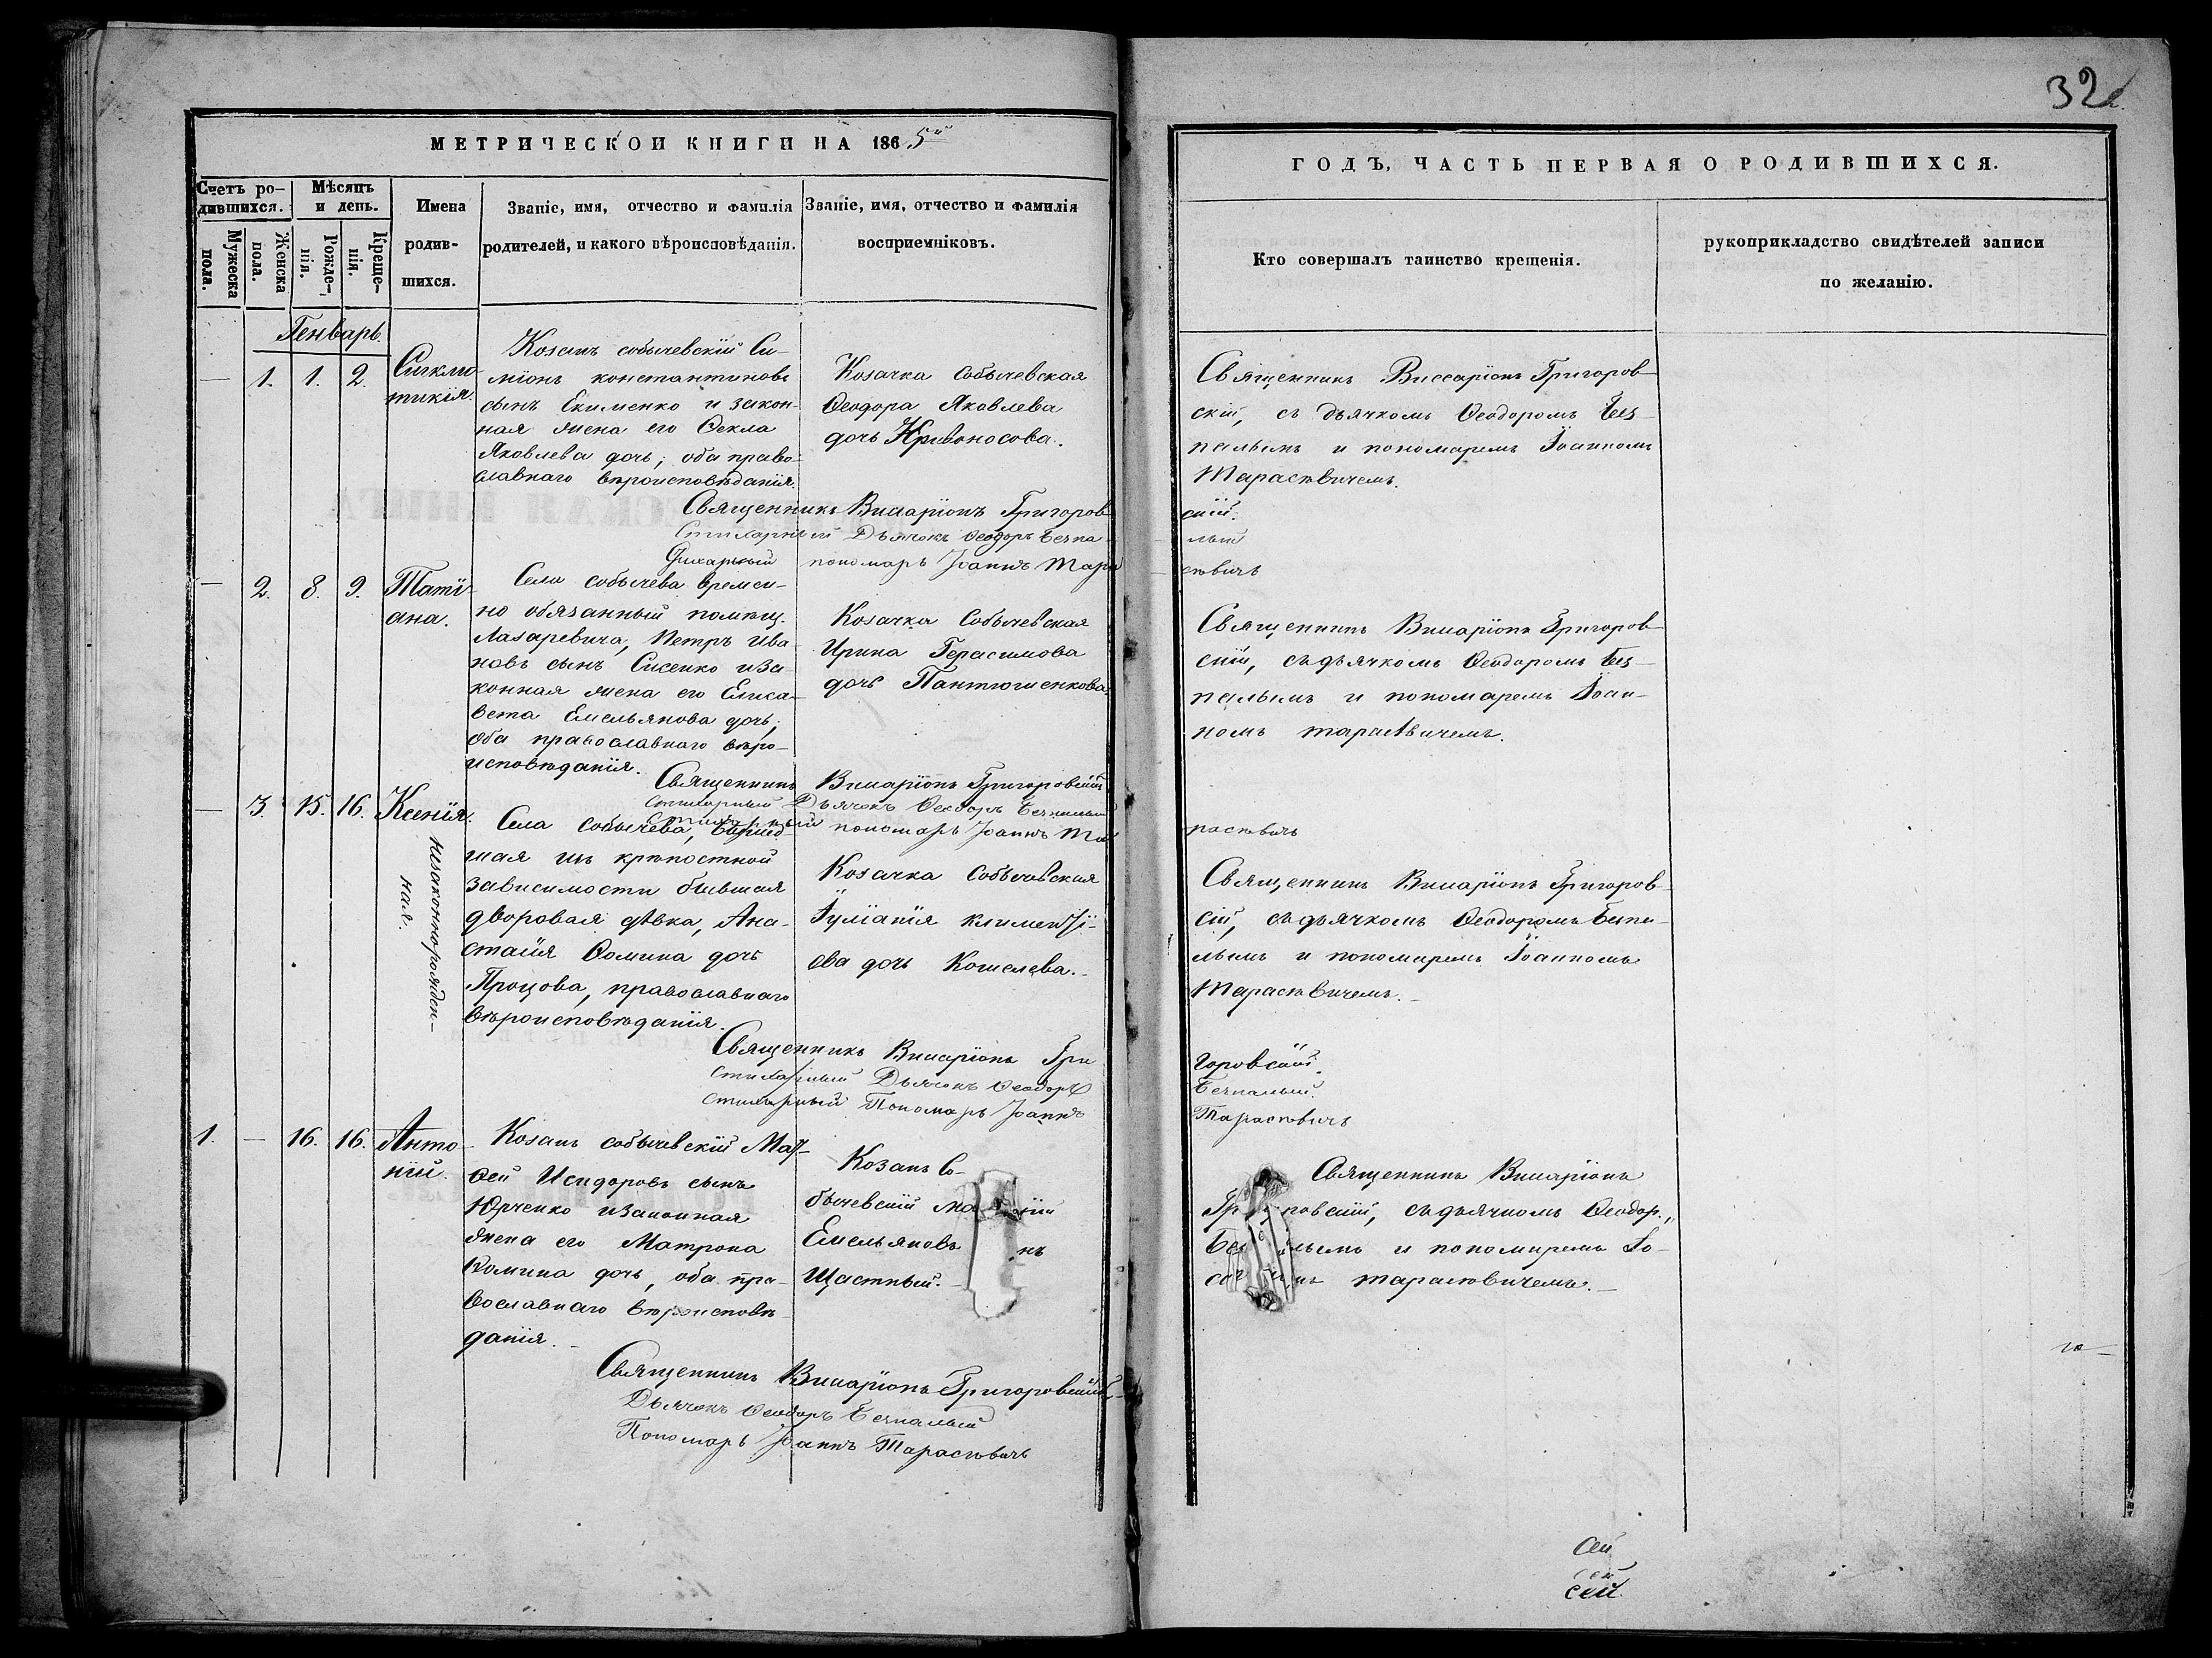 32
МЕТРИЧЕСКОЙ КНИГИ НА 1865й
ГОДЪ, ЧАСТЬ ПЕРВАЯ О РОДИВШИХСЯ.
Счетъ родившихся.
Мужеска пола.
Женска пола.
Мѣсяцъ и день.
Рожденія.
Крещенія.
Имена родившихся.
Званіе, имя, отчество и фамилія родителей, и какого вѣроисповѣданія.
Званіе, имя, отчество и фамилія восприемніковъ.
Кто совершалъ таинство крещенія.
рукоприкладство свидѣтелей записи по желанію.
Генварь.
— 1. 1. 2.
Сигкли-
тикія.
Козакъ собычевскій Си-
міонъ константиновъ
сынъ Екименко и закон-
ная жена его Ѳекла
Яковлева дочь; оба право-
славнаго вѣроисповѣданія.
Козачка Собычевская
Ѳеодора Яковлева
дочь Кривоносова.
Священникъ Виссаріонъ Григоров-
скій, съ дьячкомъ Ѳеодоромъ Без-
палымъ и пономаремъ Іоанномъ
Тарасѣвичемъ.
Священникъ Виссаріонъ Григоров-
скій.
Стихарный Дьячокъ Ѳеодоръ Безпа-
лый
Стихарный пономарь Іоаннъ Тара-
сѣвичъ
— 2. 8. 9.
Таті-
ана.
Села собычева времен-
но обязанный помѣщ.
Лазаревича, Петръ Ива-
новъ сынъ Сисенко и за-
конная жена его Елиса-
вета Емельянова дочь;
оба православнаго вѣро-
исповѣданія.
Козачка Собычевская
Ирина Герасимова
дочь Пантюшенкова.
Священникъ Виссаріонъ Григоров-
скій, съ дьячкомъ Ѳеодоромъ Без-
палымъ и пономаремъ Іоан-
номъ тарасѣвичемъ.
Священникъ Виссаріонъ Григоровскій
Стихарный Дьячокъ Ѳеодоръ Безпалый
Стихарный пономарь Іоаннъ Та-
расѣвичъ
— 3. 15. 16.
Ксенія.
незаконнорожден-
ная.
Села собычева, вышед-
шая изъ крѣпостной
зависимости бывшая
дворовая дѣвка, Ана-
стасія Ѳомина дочь
Процова, православнаго
вѣроисповѣданія.
Козачка Собычевская
Іуліанія климентѣ-
ева дочь Кошелева.
Священникъ Виссаріонъ Григоров-
скій, съ дьячкомъ Ѳеодоромъ Безпа-
лымъ и пономаремъ Іоанномъ
Тарасѣвичемъ.
Священникъ Виссаріонъ Гри-
горовскій.
Стихарный Дьячокъ Ѳеодоръ
Безпалый.
Стихарный Пономарь Іоаннъ
Тарасѣвичъ
1. — 16. 16.
Анто-
ній.
Козакъ собычевскій Мат-
ѳей Исидоровъ сынъ
Юрченко и законная
жена его Матрона
Ѳомина дочь, оба пра-
вославнаго вѣроисповѣ-
данія.
Козакъ Со-
бычевскій
Емельяновъ
Щастный.
Священникъ Виссаріонъ
Григоровскій, съ дьячкомъ Ѳеодор.,
Безпалымъ и пономаремъ Іо-
анномъ тарасѣвичемъ.
Священникъ Виссаріонъ Григоровскій
Дьячокъ Ѳеодоръ Безпалый
Пономарь Іоаннъ Тарасѣвичъ
сей